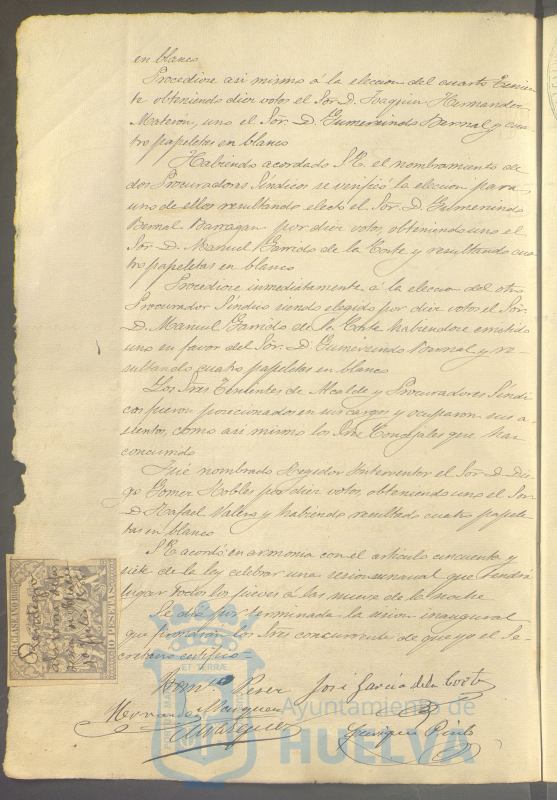 en blanco
Procediose asi mismo á la eleccion del cuarto Tenien-
te obteniendo diez votos el Sor. D. Joaquin Hernandez
Materon, uno el Sor. D. Gumersindo Bernal y cua-
tro papeletas en blanco
Habiendo acordado S.E. el nombramiento de
dos Procuradores Síndicos se verificó la eleccion para
uno de ellos resultando electo el Sor. D. Gumersindo
Bernal Barragan por diez votos, obteniendo uno el
Sor. D. Manuel Garrido de la Corte y resultando cua-
tro papeletas en blanco
Procediose inmediatamente á la eleccion del otro
Procurador Síndico siendo elegido por diez votos el Sor.
D. Manuel Garrido de la Corte habiendose emitido
uno en favor del Sor. D. Gumersindo Bernal y re-
sultando cuatro papeletas en blanco
Los Sres Tenientes de Alcalde y Procuradores Síndi-
cos fueron posecionados en sus cargos y ocuparon sus a-
sientos, como asi mismo los Sres Concejales que han
concurrido
Fué nombrado Regidor Interventor el Sor. D. Die-
go Gomez Robles por diez votos, obteniendo uno el Sor
D. Rafael Valero y habiendo resultado cuatro papele-
tas en blanco
S.E. acordó en armonia con el artículo cincuenta y
siete de la ley celebrar una sesion semanal que tendrá
lugar todos los jueves á las nueve de la noche
Se dió por terminada la sesion inaugural
que firmarán los Sres concurrente de que yo el Se-
cretario certifico =
Perez José Garcia de la Corte
Hernandez
Vazquez Pinto
Ayuntamiento de
HUELVA
ET TERRÆ